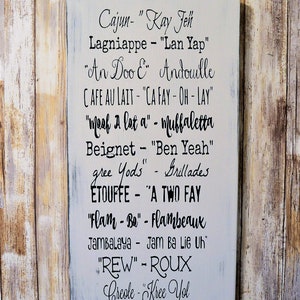 Cajun- "Kay Jeh"
Lagniappe - "Lan Yap"
"An Doo E" Andouille
CAFE AU LAIT - "CA FAY - OH - LAY"
"Moof A lot a" - Muffaletta
Beignet - "Ben Yeah"
"gree Yods" - Grillades
ETOUFFE - "A TWO FAY
"Flam - Bo" - Flambeaux
Jambalaya - Jam Ba Lie Uh"
"REW" - ROUX
Creole - "Kree Yol